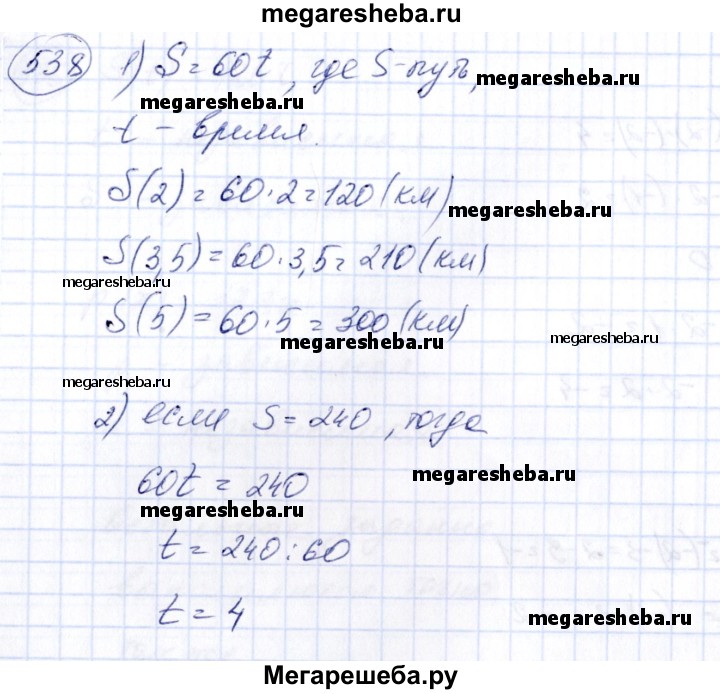 megaresheba.ru
538 1) S=60t, где S-путь,
megaresheba.ru
t - время.
S(2)=60·2=120(км)
megaresheba.ru
S(3,5)=60·3,5=210(км)
megaresheba.ru
S(5)=60·5=300(км)
megaresheba.ru megaresheba.ru
megaresheba.ru
2) если S=240, тогда
megaresheba.ru
60t=240
megaresheba.ru
t=240:60
t=4
megaresheba.ru
Мегарешеба.ру